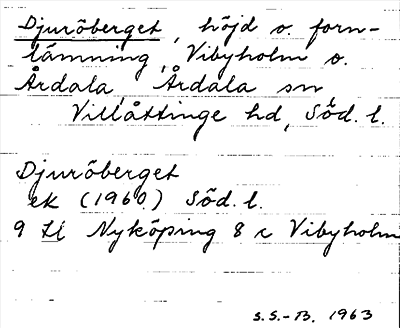 Djuröberget, höjd o. forn-
lämning, Vibyholm o.
Årdala, Årdala sn
Villåttinge hd, Söd. l.
Djuröberget
ek (1960) Söd. l.
9 Li Nyköping 8 c Vibyholm
S.S.-B. 1963